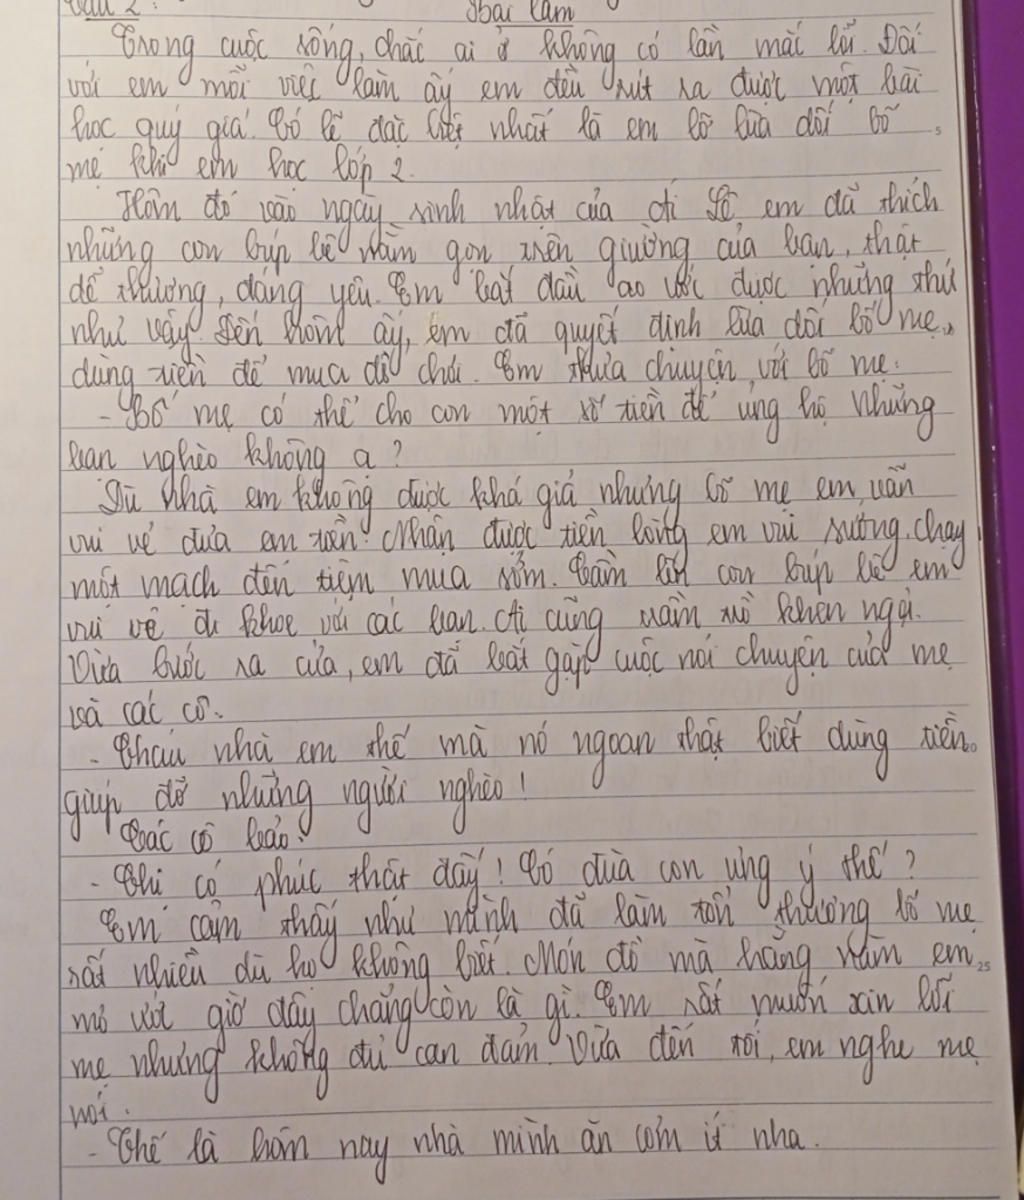 Câu 2: Bài làm
Trong cuộc sống, chắc ai ở không có lần mắc lỗi. Đối
với em mỗi việc làm ấy em đều rút ra được một bài
học quý giá. Có lẽ đặc biệt nhất là em lỡ lừa dối bố
mẹ khi em học lớp 2.
Hôm đó vào ngày sinh nhật của em đã thích
những con búp bê nằm gọn trên giường của bạn, thật
dễ thương, đáng yêu. Em bắt đầu ao ước được những thứ
như vậy. Đến hôm ấy, em đã quyết định lừa dối bố mẹ,
dùng tiền để mua đồ chơi. Em thưa chuyện với bố mẹ:
- Bố mẹ có thể cho con một số tiền để ủng hộ những
bạn nghèo không ạ?
Dù nhà em không được khá giả nhưng bố mẹ em vẫn
vui vẻ đưa em tiền. Nhận được tiền lòng em vui sướng, chạy
một mạch đến tiệm mua sớm. Cầm lấy con búp bê em
vui vẻ đi khoe với các bạn. Ai cũng trầm trồ khen ngợi.
Vừa bước ra cửa, em đã bắt gặp cuộc nói chuyện của mẹ
và các cô.
- Cháu nhà em thế mà nó ngoan thật biết dùng tiền
giúp đỡ những người nghèo!
Các cô bảo:
- Chị có phúc thật đấy! Có đứa con ưng ý thế?
Em cảm thấy như mình đã làm tổn thương bố mẹ
rất nhiều dù họ không biết. Món đồ mà hằng năm em
mơ ước giờ đây chẳng còn là gì. Em rất muốn xin lỗi
mẹ nhưng không đủ can đảm. Vừa đến tối, em nghe mẹ
nói:
- Thế là hôm nay nhà mình ăn cơm ít nha.